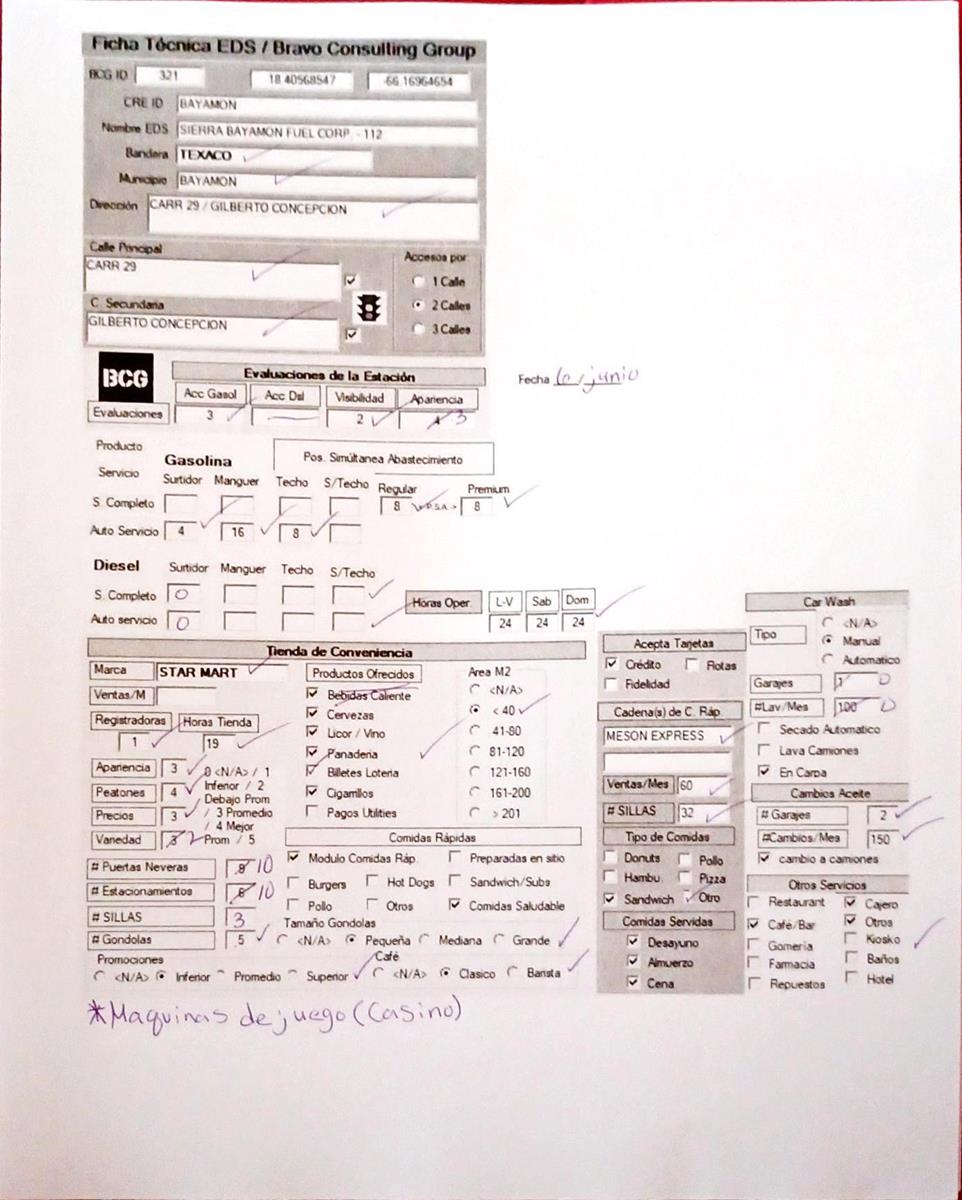 Ficha Técnica EDS / Bravo Consulting Group
BCG ID 321 18.40568547 -66.16964654
CRE ID BAYAMON
Nombre EDS SIERRA BAYAMON FUEL CORP. - 112
Bandera TEXACO
Municipio BAYAMON
Dirección CARR 29 / GILBERTO CONCEPCION
Calle Principal
CARR 29
C. Secundaria
GILBERTO CONCEPCION
Accesos por:
1 Calle
2 Calles
3 Calles
BCG
Evaluaciones de la Estación
Fecha 6/junio
Acc Gasol Acc Dsl Visibilidad Apariencia
Evaluaciones 3 2 4 3
Producto
Gasolina
Pos. Simúltanea Abastecimiento
Servicio Surtidor Manguer Techo S/Techo Regular Premium
S. Completo 8 <P.S.A.> 8
Auto Servicio 4 16 8
Diesel Surtidor Manguer Techo S/Techo
S. Completo 0
Auto servicio 0
Horas Oper. L-V Sab Dom
24 24 24
Tienda de Conveniencia
Marca STAR MART
Ventas/M
Registradoras Horas Tienda
1 19
Apariencia 3 0 <N/A> / 1
Peatones 4 Inferior / 2
Debajo Prom
Precios 3 / 3 Promedio
/ 4 Mejor
Variedad 3 2 Prom / 5
# Puertas Neveras 8 10
# Estacionamientos 6 10
# SILLAS 3
# Gondolas 5
Productos Ofrecidos
Bebidas Caliente
Cervezas
Licor / Vino
Panaderia
Billetes Loteria
Cigarrillos
Pagos Utilities
Area M2
<N/A>
< 40
41-80
81-120
121-160
161-200
> 201
Comidas Rápidas
Modulo Comidas Ráp. Preparadas en sitio
Burgers Hot Dogs Sandwich/Subs
Pollo Otros Comidas Saludable
Tamaño Gondolas
<N/A> Pequeña Mediana Grande
Promociones
<N/A> Inferior Promedio Superior
Café
<N/A> Clasico Barista
Acepta Tarjetas
Crédito Flotas
Fidelidad
Cadena(s) de C. Ráp.
MESON EXPRESS
Ventas/Mes 60
# SILLAS 32
Tipo de Comidas
Donuts Pollo
Hambu. Pizza
Sandwich Otro
Comidas Servidas
Desayuno
Almuerzo
Cena
Car Wash
Tipo <N/A>
Manual
Automatico
Garajes 1 0
#Lav/Mes 100 0
Secado Automatico
Lava Camiones
En Carpa
Cambios Aceite
# Garajes 2
#Cambios/Mes 150
cambio a camiones
Otros Servicios
Restaurant Cajero
Café/Bar Otros
Gomeria Kiosko
Farmacia Baños
Repuestos Hotel
*Maquinas de juego (Casino)